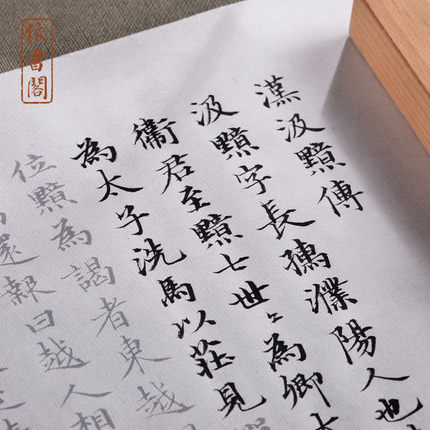 漢汲黯傳
汲黯字長孺濮陽人也
衛君至黯七世〻為卿
為太子洗馬以莊見
位黯為謁者東越
還報曰越人相
香閣